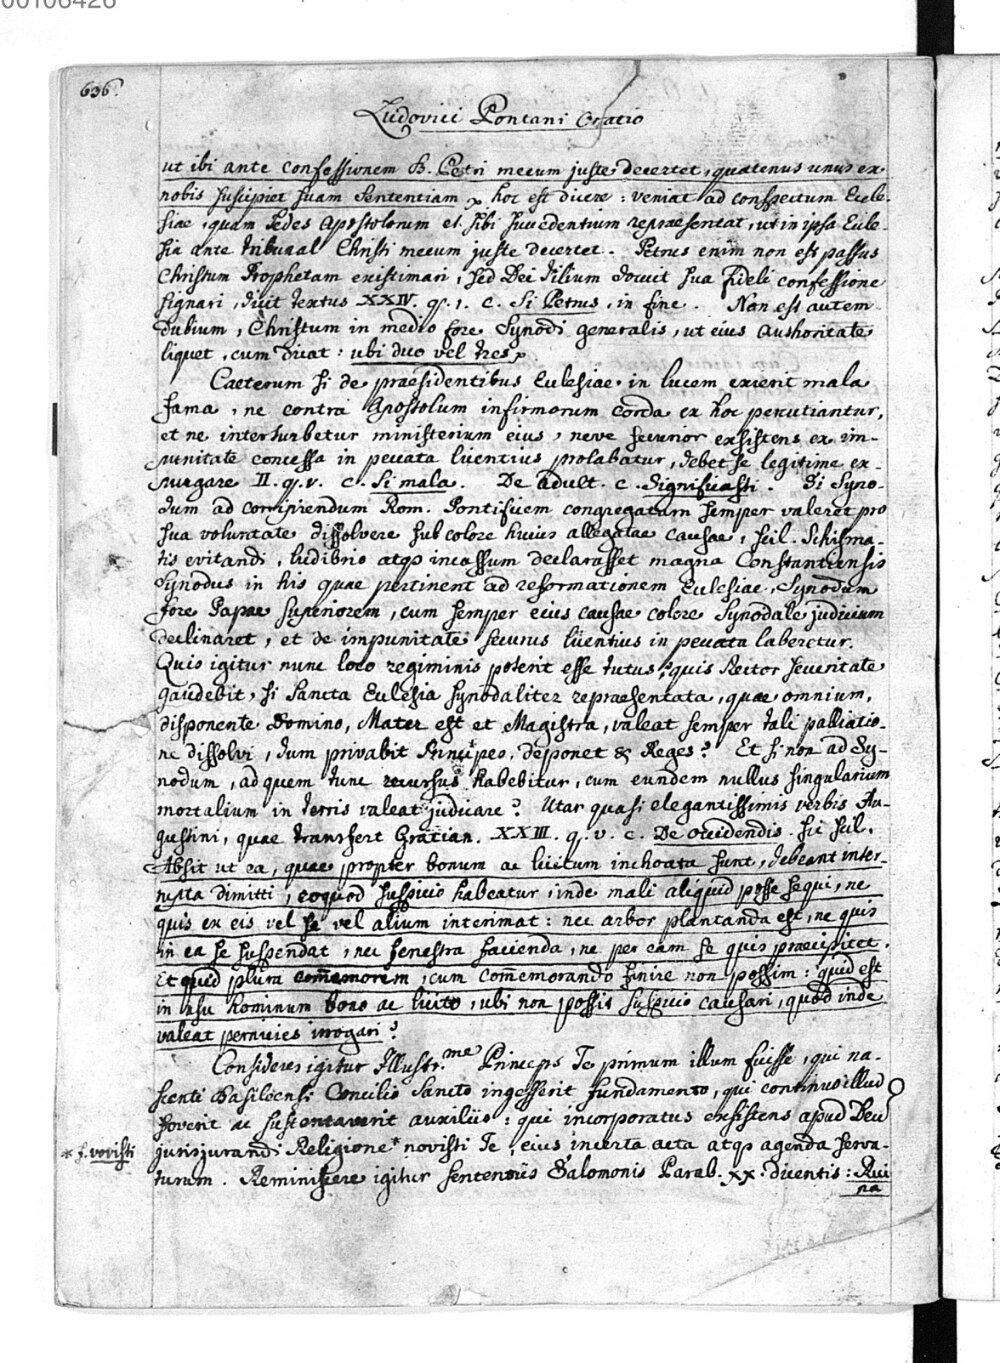 00106426
636.
Ludovici Pontani Oratio
ut ibi ante confessionem B. Petri mecum juste decertet, quatenus unus ex
nobis suscipiet suam sententiam, hoc est dicere: veniat ad conspectum Eccle-
siae, quam sedes Apostolorum et sibi succedentium repraesentat, ut in ipsa Eccle-
sia ante tribunal Christi mecum juste decertet. Petrus enim non est passus
Christum Prophetam existimari, sed Dei Filium docuit sua fideli confessione
signari, dicit textus XXIV. q. 1. C. Si Petrus, in fine. Non est autem
dubium, Christum in medio fore Synodi generalis, ut eius Authoritate
liquet, cum dicat: ubi duo vel tres
Caeterum si de praesidentibus Ecclesiae in lucem exierit mala
fama, ne contra Apostolum infirmorum corda ex hoc percutiantur,
et ne interturbetur ministerium eius, neve securior exsistens ex im-
punitate concessa in peccata licentius prolabatur, debet se legitime ex-
purgare II. q. v. c. Si mala. De adult. c. Significasti. Si Syno-
dum ad corripiendum Rom. Pontificem congregatam semper valeret pro
sua voluntate dissolvere sub colore huius allegatae causae, scil. Schisma-
tis evitandi, ludibrio atqꝫ incassum declarasset magna Constantiensis
Synodus in his quae pertinent ad reformationem Ecclesiae, Synodum
fore Papae superiorem, cum semper eius causae colore Synodale judicium
declinaret, et de impunitate securus licentius in peccata laberetur.
Quis igitur nunc loco regiminis poterit esse tutus, quis Rector securitate
gaudebit, si Sancta Ecclesia synodaliter repraesentata, quae omnium,
disponente Domino, Mater est et Magistra, valeat semper tali palliatio-
ne dissolvi, dum privabit Principes, deponet & Reges? Et si non ad Sy-
nodum, ad quem tunc recursus habebitur, cum eundem nullus singularium
mortalium in terris valeat judicare? Utar quasi elegantissimis verbis Au-
gustini, quae transfert Gratian. XXIII. q. v. c. De occidendis. sic scil.
Absit ut ea, quae propter bonum ac licitum inchoata sunt, debeant inter-
rupta dimitti, eoquod suspicio habeatur, inde mali aliquid posse sequi, ne
quis ex eis vel se vel alium interimat: nec arbor plantanda est, ne quis
in ea se suspendat, nec fenestra facienda, ne per eam se quis praecipitet.
Et quid plura com̄emorem, cum com̄emorando finire non possim: quid est
in usu hominum bono ac licito, ubi non possit suspicio causari, quod inde
valeat pernicies irrogari?
Consideres igitur Illustr.me Princeps Te primum illum fuisse, qui na-
scenti Basileensi Concilio Sancto ingesserit fundamento, qui continuo illud
foverit ac sustentaverit auxiliis: qui incorporatus exsistens apud Deū
jurisjurandi Religione* novisti Te, eius incerta acta atqꝫ agenda serva-
* f. vovisti
turum. Reminiscere igitur sententiis Salomonis Parab. XX. dicentis: Rui
na